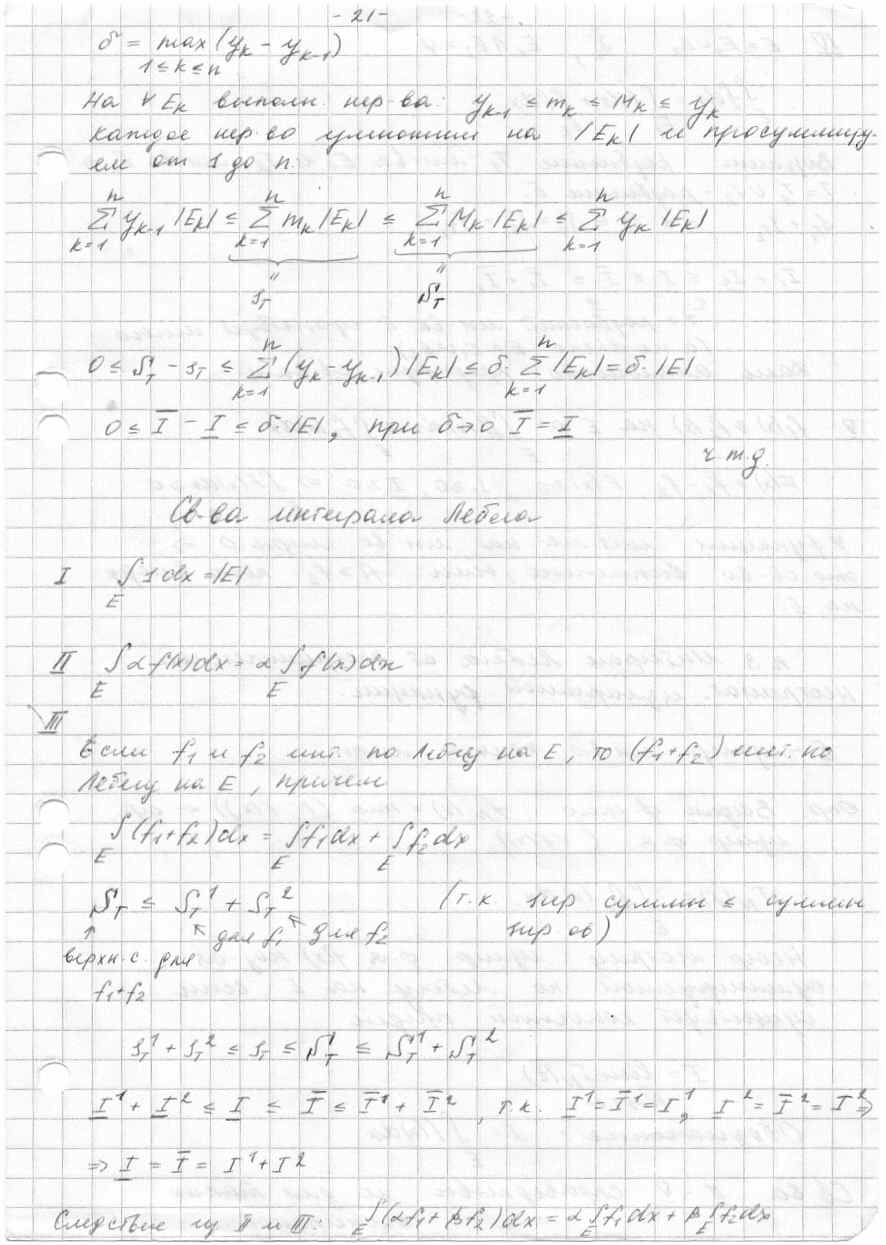 - 21 -
δ = max (y_k - y_{k-1})
1 ≤ k ≤ n
На ∀ E_k выполн. нер-ва: y_{k-1} ≤ m_k ≤ M_k ≤ y_k
каждое нер-во умножим на |E_k| и просуммиру-
ем от 1 до n:
∑_{k=1}^{n} y_{k-1} |E_k| ≤ ∑_{k=1}^{n} m_k |E_k| ≤ ∑_{k=1}^{n} M_k |E_k| ≤ ∑_{k=1}^{n} y_k |E_k|
" "
s_T S_T
0 ≤ S_T - s_T ≤ ∑_{k=1}^{n} (y_k - y_{k-1}) |E_k| ≤ δ · ∑_{k=1}^{n} |E_k| = δ · |E|
0 ≤ I̅ - I̲ ≤ δ · |E|, при δ→0 I̅ = I̲
ч.т.д.
Св-ва интеграла Лебега
I ∫_E 1 dx = |E|
II ∫_E α f(x) dx = α ∫_E f(x) dx
III
Если f_1 и f_2 инт. по Лебегу на E, то (f_1+f_2) инт. по
Лебегу на E, причем
∫_E (f_1+f_2) dx = ∫_E f_1 dx + ∫_E f_2 dx
S_T ≤ S_T^1 + S_T^2 (т.к. sup суммы ≤ суммы
↑ ↖ для f_1 ↖ для f_2 sup ов)
верхн. с. для
f_1+f_2
s_T^1 + s_T^2 ≤ s_T ≤ S_T ≤ S_T^1 + S_T^2
I̲^1 + I̲^2 ≤ I̲ ≤ I̅ ≤ I̅^1 + I̅^2, т.к. I̲^1 = I̅^1 = I^1, I̲^2 = I̅^2 = I^2 ⇒
⇒ I̲ = I̅ = I^1 + I^2
Следствие из II и III: ∫_E (αf_1 + βf_2) dx = α ∫_E f_1 dx + β ∫_E f_2 dx